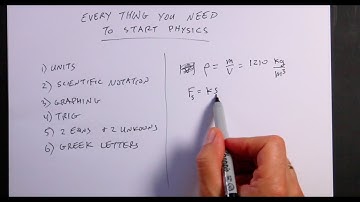 EVERY THING YOU NEED
TO START PHYSICS
1) UNITS
2) SCIENTIFIC NOTATION
3) GRAPHING
4) TRIG
5) 2 EQNS & 2 UNKOWNS
6) GREEK LETTERS
ρ = m/V = 1210 kg/m³
Fs = ks